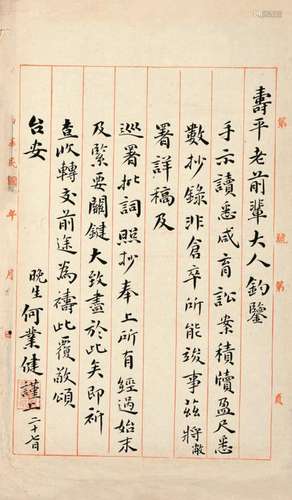 壽平老前輩大人鈞鑒
手示讀悉咸育訟案積牘盈尺悉
數抄錄非倉卒所能竣事茲將敝
署詳稿及
巡署批詞照抄奉上所有經過始末
及緊要關鍵大致盡於此矣即祈
查收轉交前途為禱此覆敬頌
台安
晚生何業健謹上 二十七日
第 號第 頁
年 月 日